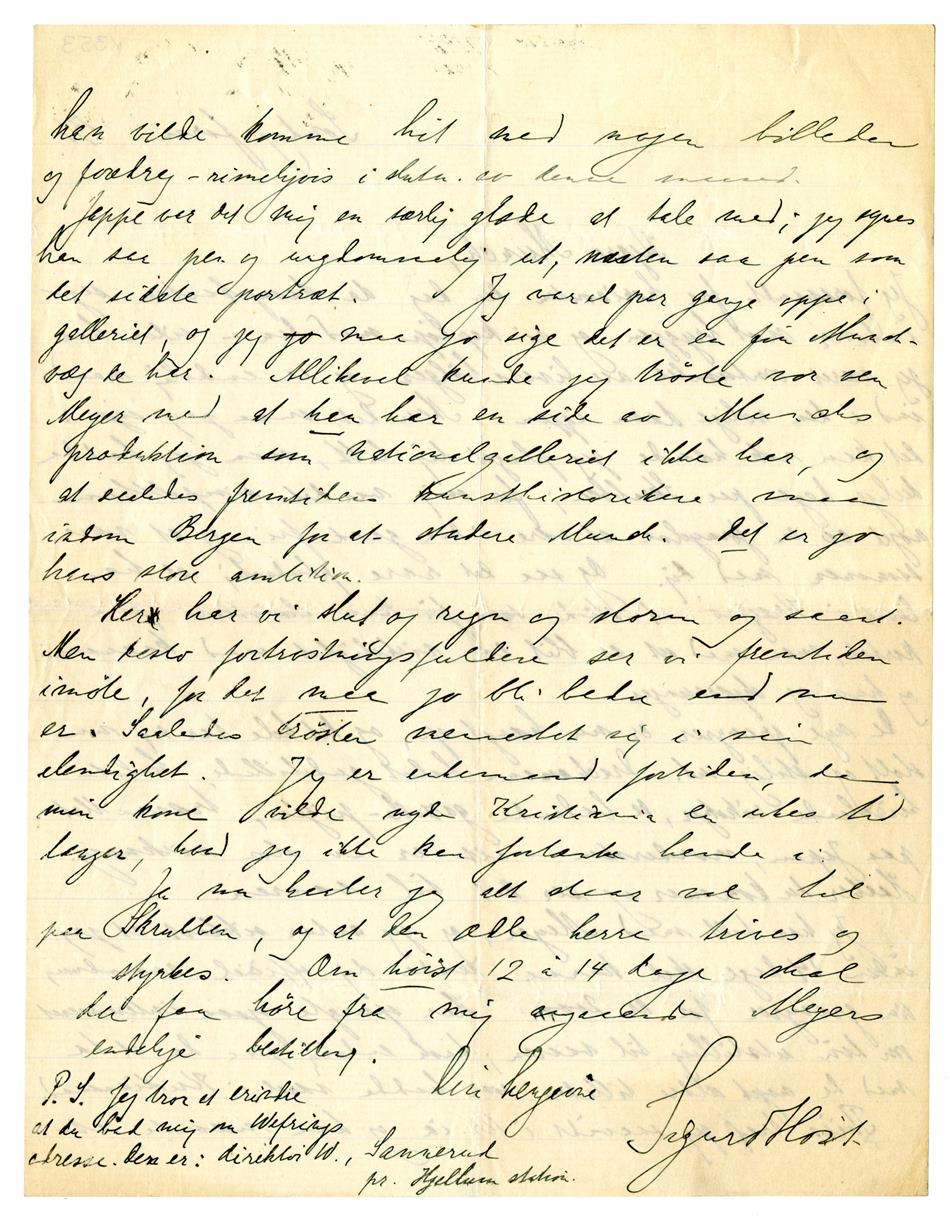 han vilde komme hit med nogen billeder
og foredrag – rimeligvis i slutn. av denne maaned.
Jappe var det mig en særlig glæde at tale med; jeg synes
han saa pen og ungdommelig ut, næsten saa pen som
det sidste portræt. Jeg var et par gange oppe i
galleriet, og jeg jo maa jo sige det er en fin Munch-
væg de har. Allikevel kunde jeg trøste vor ven
Meyer med at han har en side av Munchs
produktion som Nationalgalleriet ikke har, og
at saaledes fremtidens kunsthistorikere maa
indom Bergen for at studere Munch. Det er jo
hans store ambition.
Her har vi slut og regn og storm og saant.
Men desto fortrøstningsfuldere ser vi fremtiden
imøte, for det maa jo bli bedre end nu
er. Saaledes trøster mennesket sig i sin
elendighet. Jeg er enkemand fortiden, da
min kone vilde nyde Kristiania en ukes tid
længer, hvad jeg ikke kan fortænke hende i.
Ja nu haaber jeg alt staar vel til
paa Skrubben, og at den ædle herre trives og
styrkes. Om høist 12 à 14 dage skal
du faa høre fra mig angaaende Meyers
endelige bestilling.
Din hengivne
Sigurd Høst
P. S. Jeg tror at erindre
at du bad mig om Wefrings
adresse. Den er: direktør W., Sannerud
pr. Hjellum station.